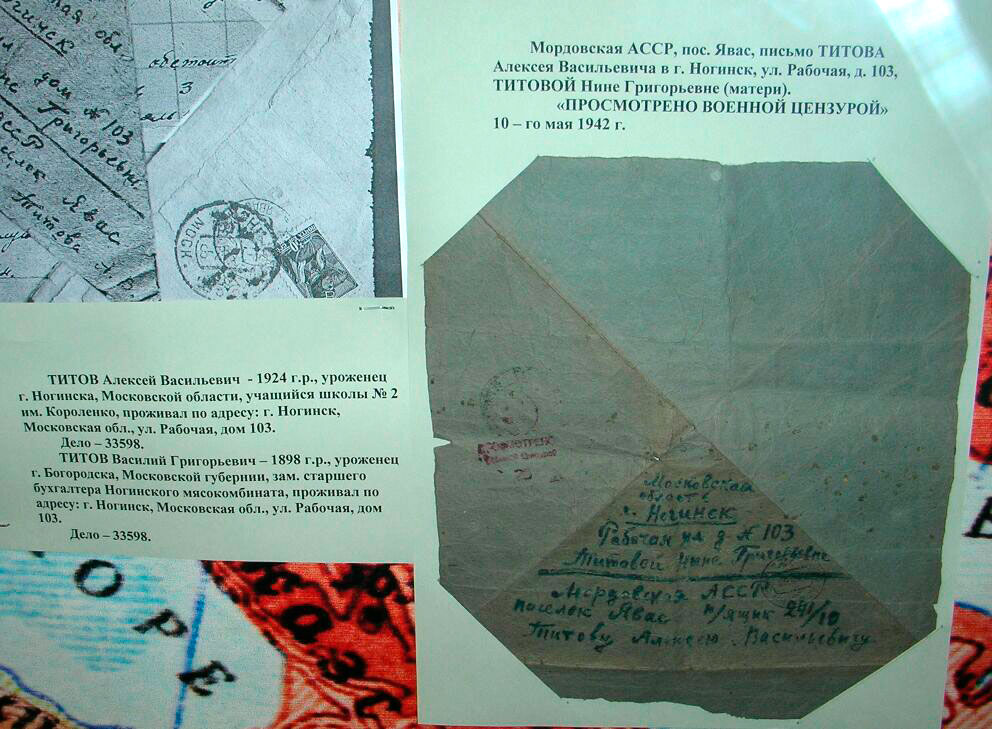 Мордовская АССР, пос. Явас, письмо ТИТОВА
Алексея Васильевича в г. Ногинск, ул. Рабочая, д. 103,
ТИТОВОЙ Нине Григорьевне (матери).
«ПРОСМОТРЕНО ВОЕННОЙ ЦЕНЗУРОЙ»
10 – го мая 1942 г.
обл.
дом № 103
Григорьевне
Явас
Титова А.
3
МОСК
ТИТОВ Алексей Васильевич - 1924 г.р., уроженец
г. Ногинска, Московской области, учащийся школы № 2
им. Короленко, проживал по адресу: г. Ногинск,
Московская обл., ул. Рабочая, дом 103.
Дело – 33598.
ТИТОВ Василий Григорьевич – 1898 г.р., уроженец
г. Богородска, Московской губернии, зам. старшего
бухгалтера Ногинского мясокомбината, проживал по
адресу: г. Ногинск, Московская обл., ул. Рабочая, дом
103.
Дело – 33598.
ПРОСМОТРЕНО
Московская
область
г. Ногинск
Рабочая ул д № 103
Титовой Нине Григорьевне
Мордовская АССР
поселок Явас п/ящик 241/10
Титову Алексею Васильевичу
ОРЕ